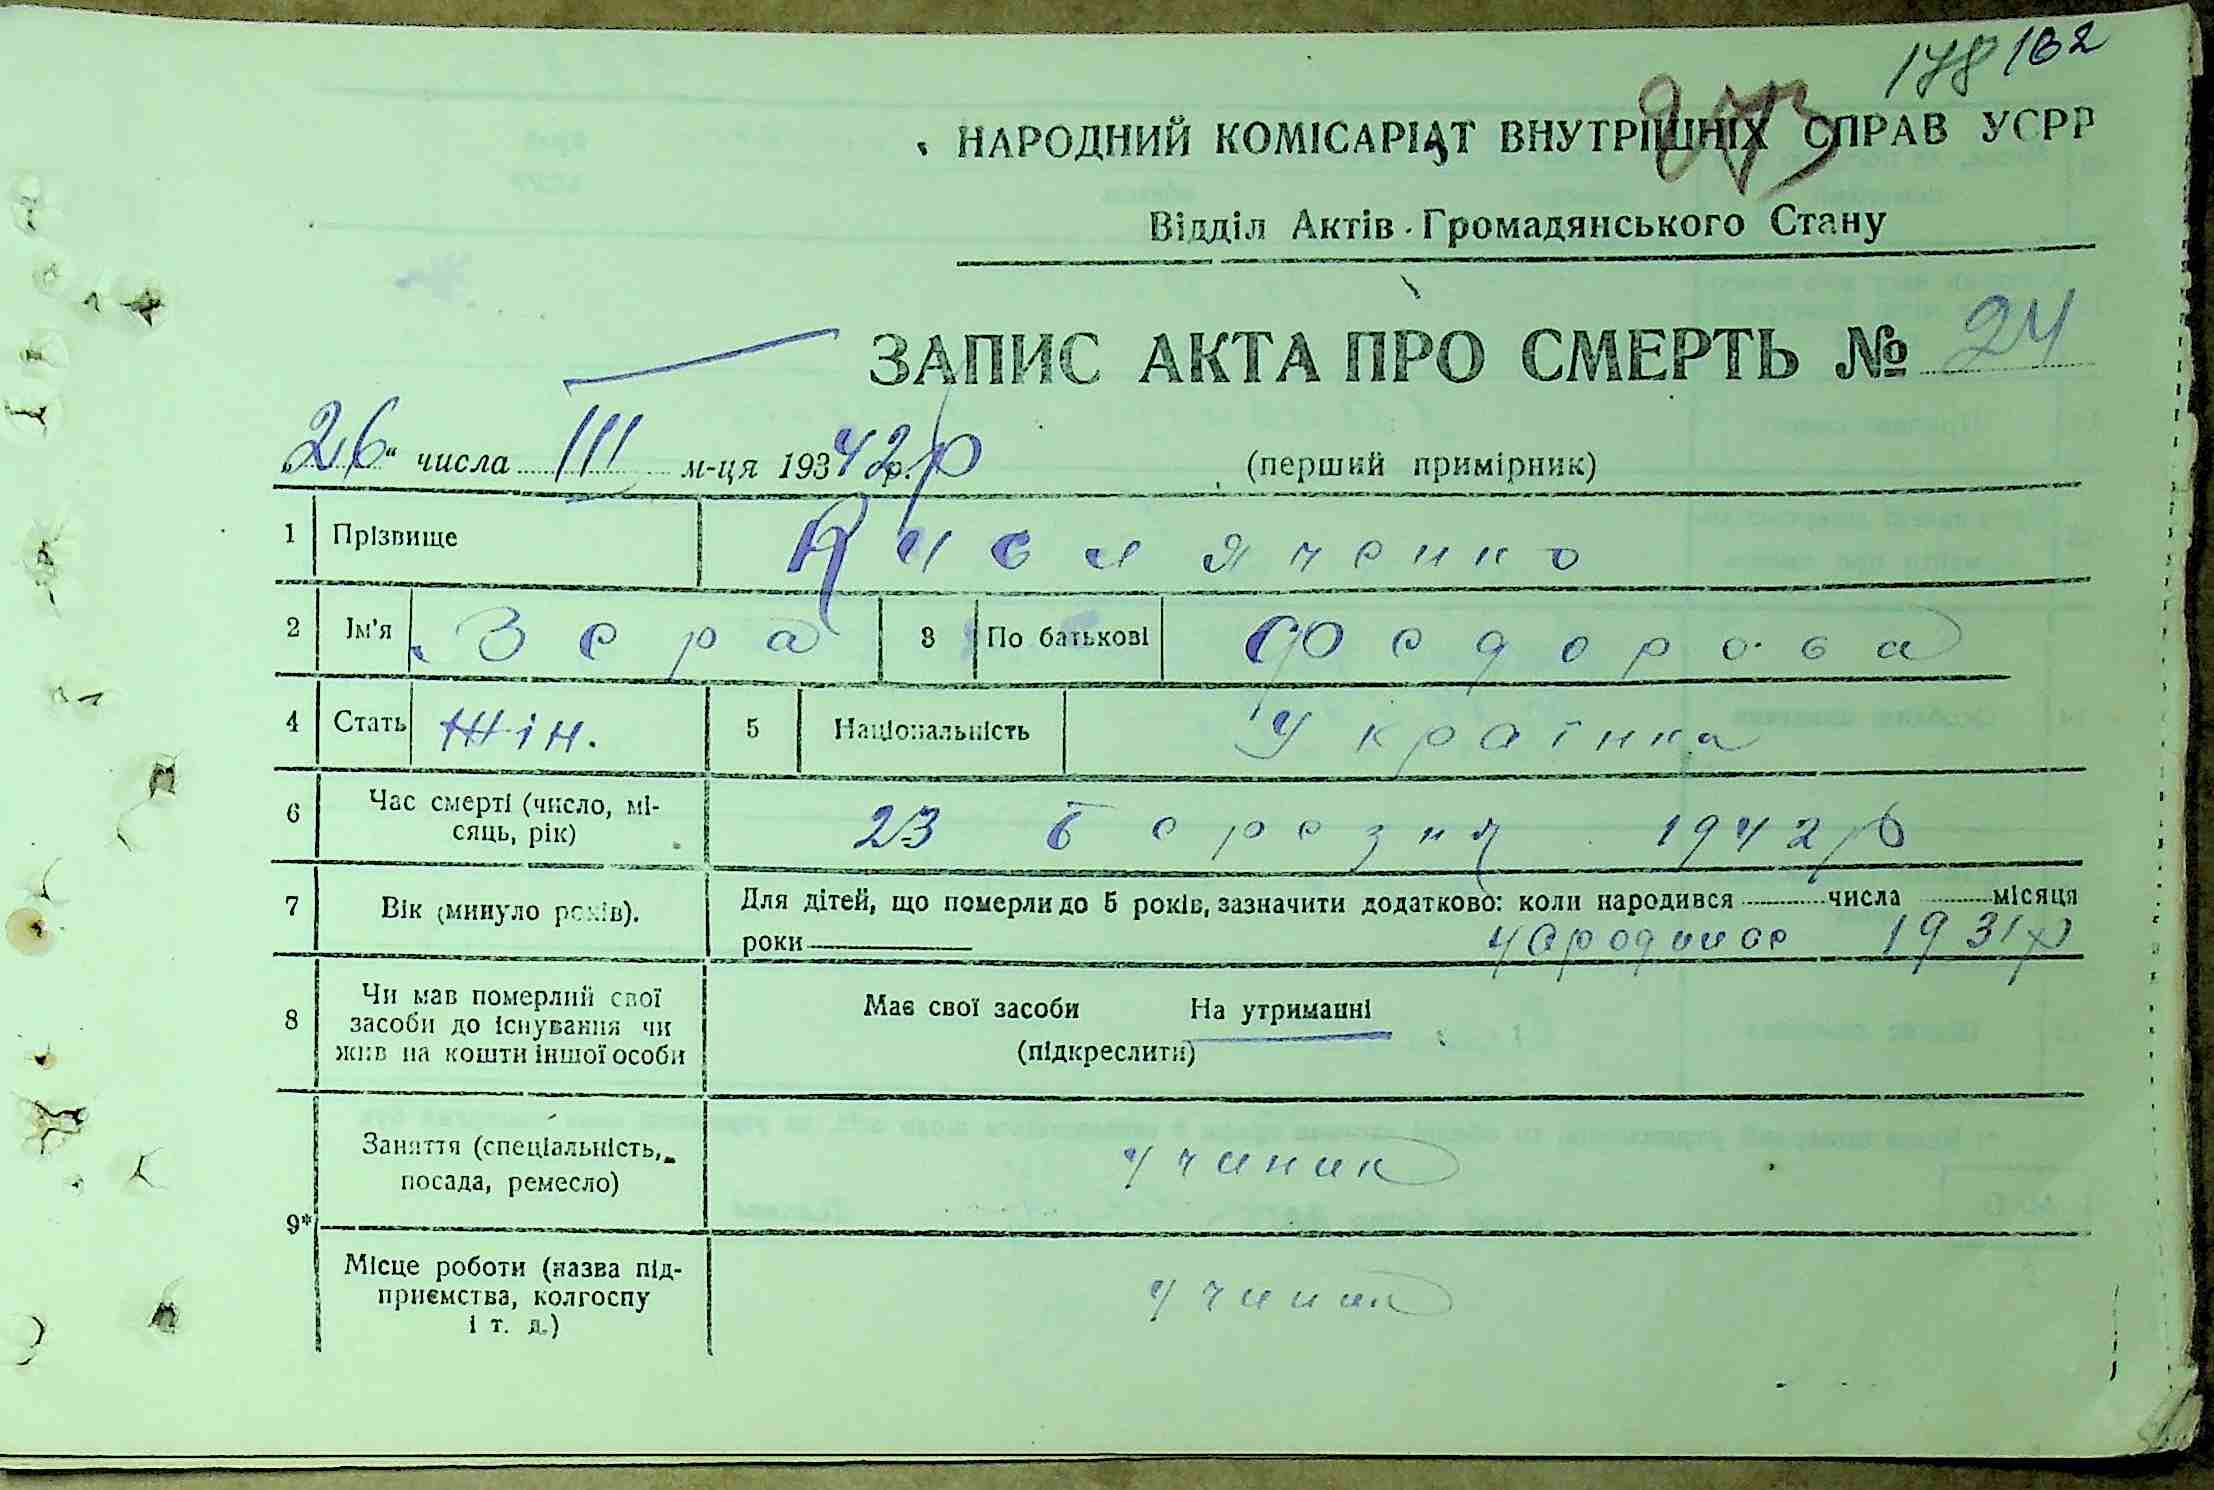 178 182
273
НАРОДНИЙ КОМІСАРІАТ ВНУТРІШНІХ СПРАВ УСРР
Відділ Актів Громадянського Стану
ЗАПИС АКТА ПРО СМЕРТЬ № 24
„26“ числа III м-ця 193 42 р. р (перший примірник)
1 Прізвище Кисляченко
2 Ім'я Вера 3 По батькові Федорова
4 Стать жін. 5 Національність Українка
6 Час смерті (число, мі-
сяць, рік) 23 березня 1942 р
7 Вік (минуло років). Для дітей, що померли до 5 років, зазначити додатково: коли народився числа місяця
роки 1931 р
8 Чи мав померлий свої
засоби до існування чи
жив на кошти іншої особи
Має свої засоби На утриманні
(підкреслити)
9* Заняття (спеціальність,
посада, ремесло) ученик
Місце роботи (назва під-
приємства, колгоспу
і т. д.) ученик